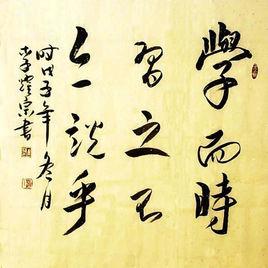 學而時
習之不
亦說乎
时戊子年冬月
李宗書